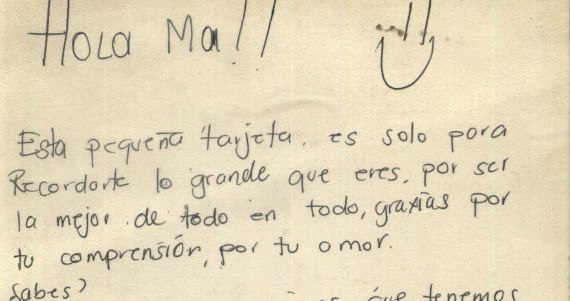 Hola Ma!!
Esta pequeña tarjeta. es solo para
Recordarte lo grande que eres, por ser
la mejor de todo en todo, graxias por
tu comprensión, por tu amor.
Sabes? que tenemos